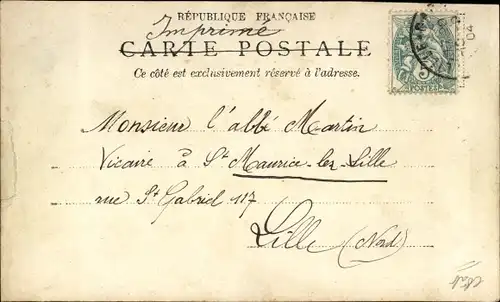 RÉPUBLIQUE FRANÇAISE
Imprimé
CARTE POSTALE
Ce côté est exclusivement réservé à l'adresse.
5
POSTES
04
Monsieur l'abbé Martin
Vicaire à St Maurice-lez-Lille
rue St Gabriel 117
Lille (Nord)